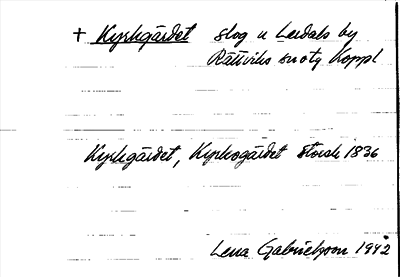 + Kyrkgärdet skog u Lerdals by
Rättviks sn otg Koppl
Kyrkgärdet, Kyrkogärdet Storsk 1836
Lena Gabrielsson 1992